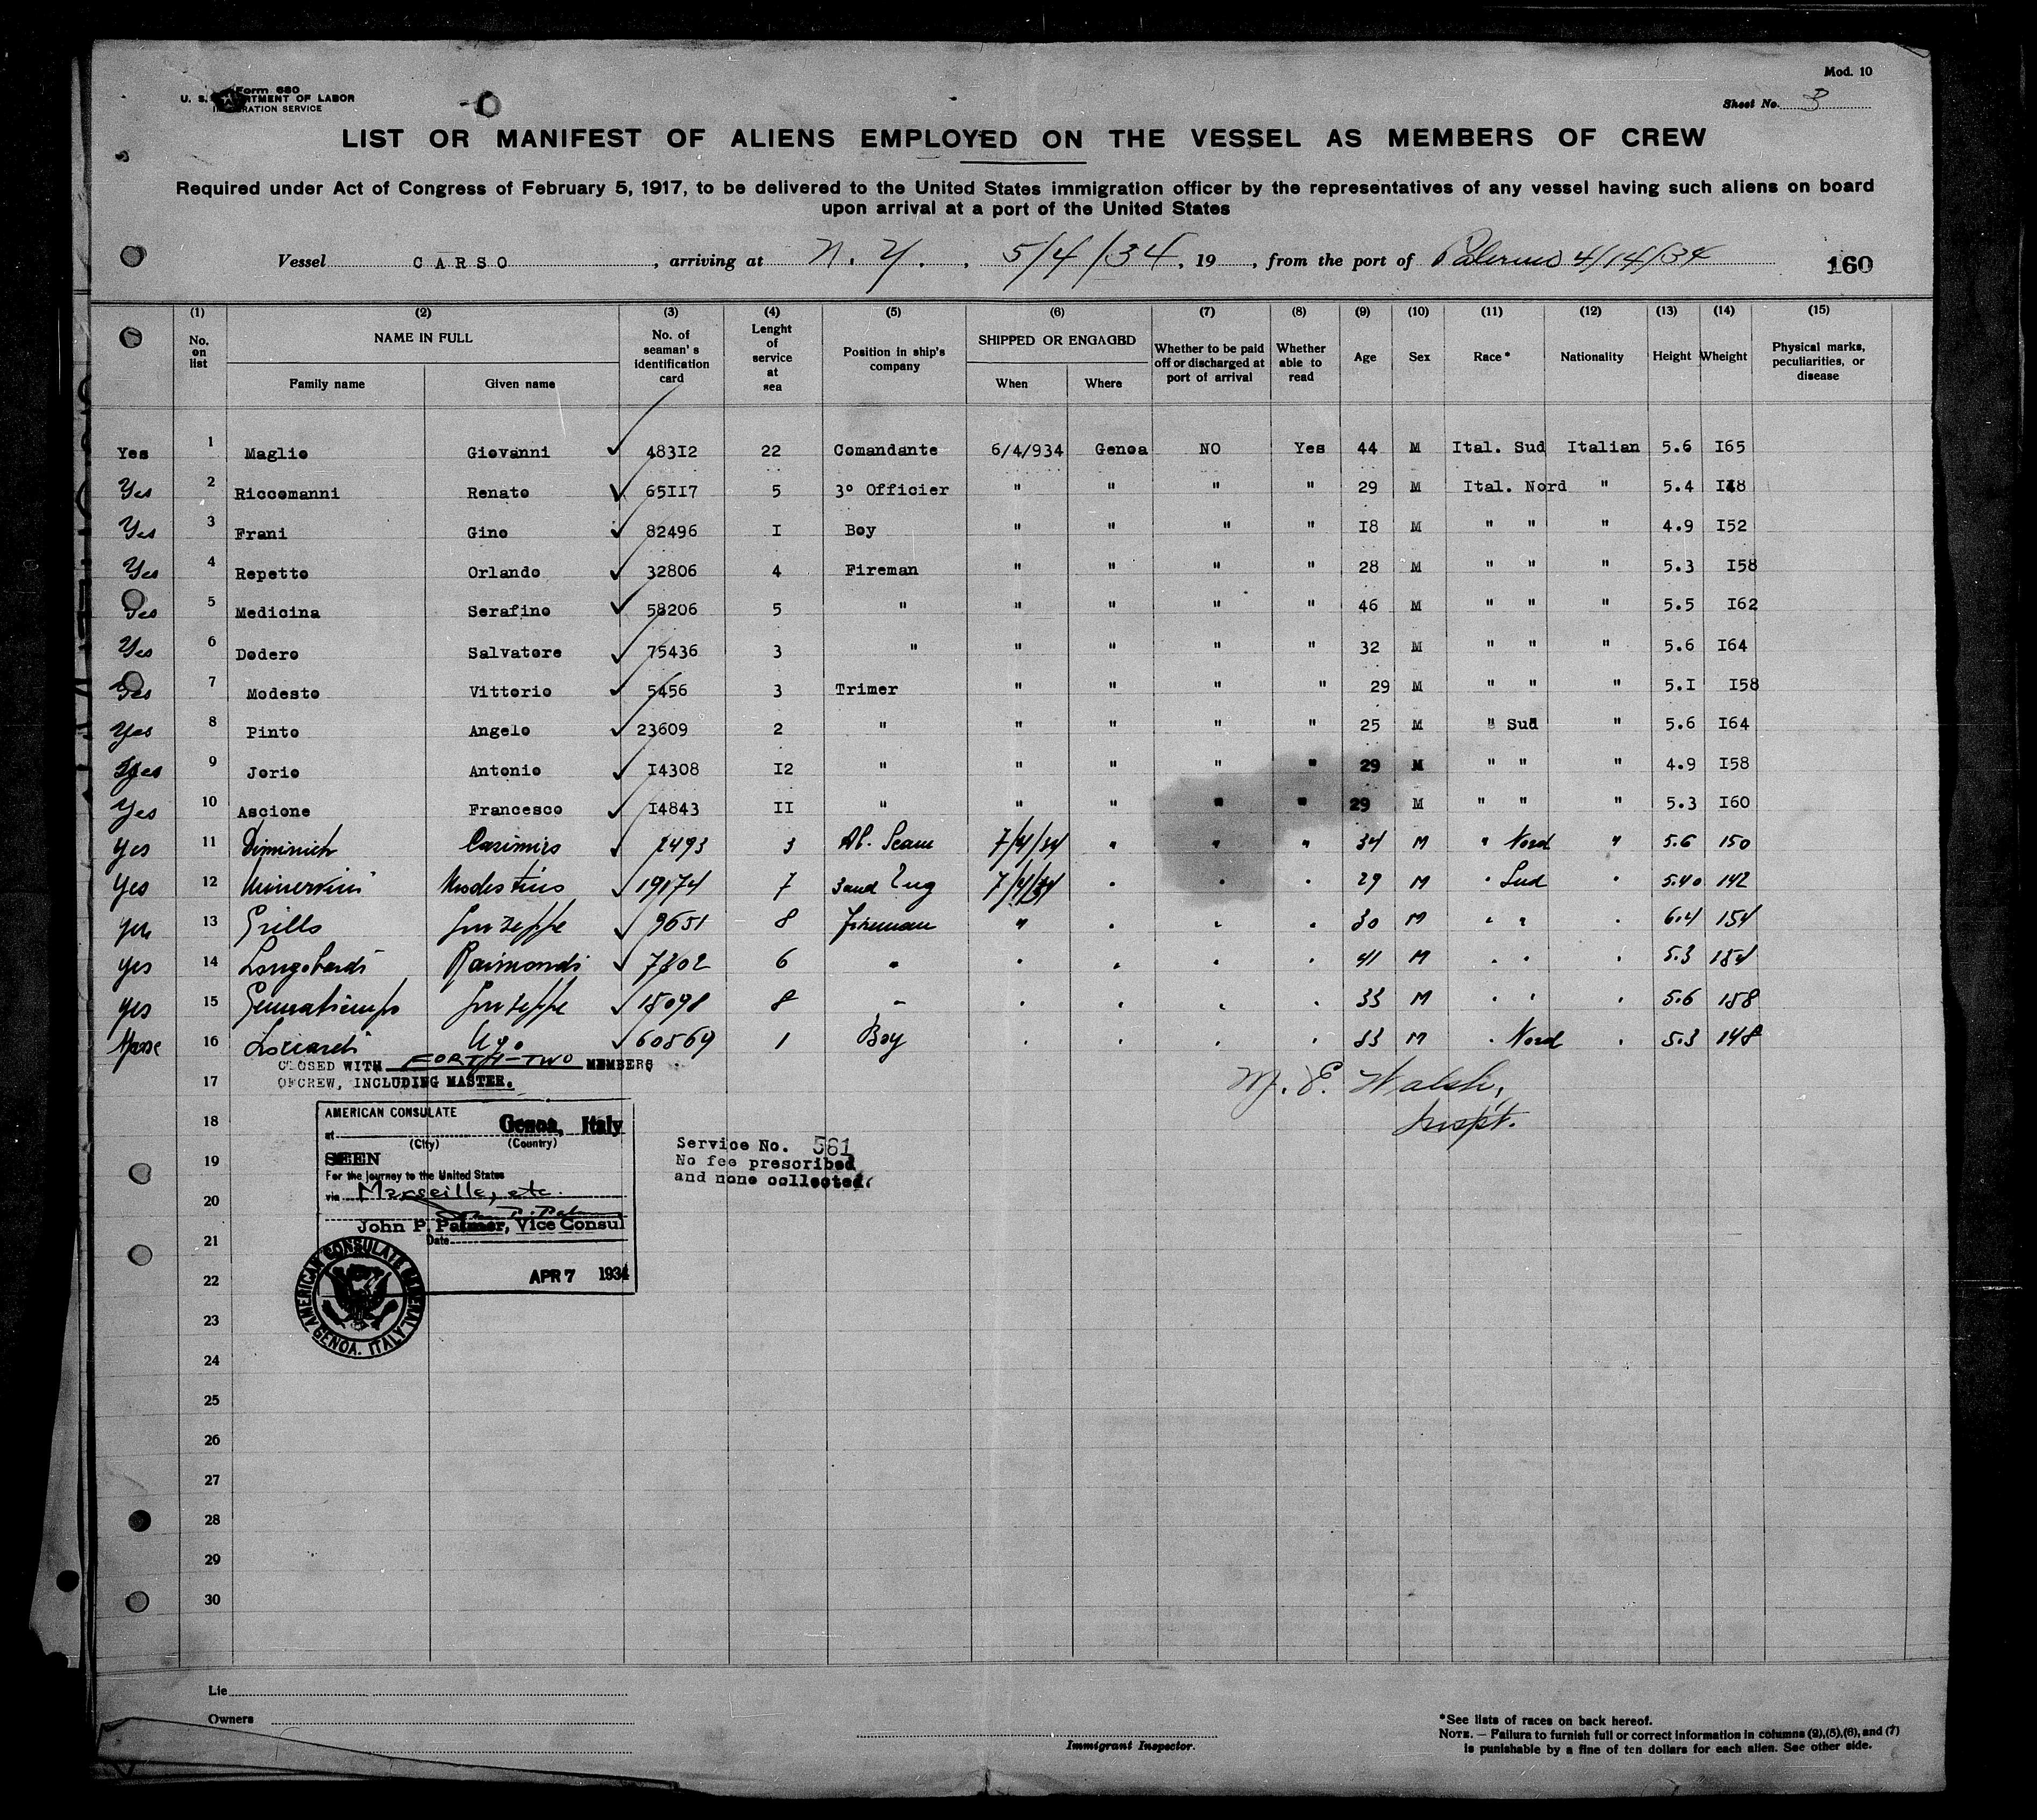 Mod. 10
Form 680
U. S. DEPARTMENT OF LABOR
IMMIGRATION SERVICE
Sheet No. 3
LIST OR MANIFEST OF ALIENS EMPLOYED ON THE VESSEL AS MEMBERS OF CREW
Required under Act of Congress of February 5, 1917, to be delivered to the United States immigration officer by the representatives of any vessel having such aliens on board
upon arrival at a port of the United States
Vessel CARSO, arriving at N. Y., 5/4/34, 19 , from the port of Palermo 4/14/34 160
(1) (2) (3) (4) (5) (6) (7) (8) (9) (10) (11) (12) (13) (14) (15)
No. on list NAME IN FULL Family name Given name No. of seaman's identification card Lenght of service at sea Position in ship's company SHIPPED OR ENGAGED When Where Whether to be paid off or discharged at port of arrival Whether able to read Age Sex Race* Nationality Height Wheight Physical marks, peculiarities, or disease
Yes 1 Maglio Giovanni 483I2 22 Comandante 6/4/934 Genoa NO Yes 44 M Ital. Sud Italian 5.6 I65
Yes 2 Riccomanni Renato 65II7 5 3º Officier " " " " 29 M Ital. Nord " 5.4 I48
Yes 3 Frani Gino 82496 I Boy " " " " I8 M " " " 4.9 I52
Yes 4 Repetto Orlando 32806 4 Fireman " " " " 28 M " " " 5.3 I58
Yes 5 Medicina Serafino 58206 5 " " " " " 46 M " " " 5.5 I62
Yes 6 Dodero Salvatore 75436 3 " " " " " 32 M " " " 5.6 I64
Yes 7 Modesto Vittorio 5456 3 Trimer " " " " 29 M " " " 5.I I58
Yes 8 Pinto Angelo 23609 2 " " " " " 25 M " Sud " 5.6 I64
Yes 9 Jorio Antonio I4308 I2 " " " " " 29 M " " " 4.9 I58
Yes 10 Ascione Francesco I4843 II " " " " " 29 M " " " 5.3 I60
Yes 11 Diminich Casimiro 2493 3 Ab. Seam 7/4/34 " " " 34 M " Nord " 5.6 150
Yes 12 Minervini 19174 7 Eng 7/4/34 " " " 29 M " Sud " 5.40 142
Yes 13 Grillo Giuseppe 9651 8 Fireman " " " " 30 M " " " 6.4 154
Yes 14 Longobardi Raimondi 7302 6 " " " " " 41 M " " " 5.3 184
Yes 15 Giuseppe 18098 8 " " " " " 33 M " " " 5.6 188
16 Locardi Ugo 60569 1 Boy " " " " 33 M " Nord " 5.3 148
CLOSED WITH FORTY-TWO MEMBERS
17 OF CREW, INCLUDING MASTER.
M. E. Walsh,
Inspt.
18 AMERICAN CONSULATE
at Genoa, Italy
(City) (Country)
19 SEEN
For the journey to the United States
20 via Marseille, etc.
John P. Palmer, Vice Consul
21 Date
22 APR 7 1934
AMERICAN CONSULATE GENERAL GENOA. ITALY
Service No. 561
No fee prescribed
and none collected.
23
24
25
26
27
28
29
30
Lie
Owners
Immigrant Inspector.
*See lists of races on back hereof.
NOTE. — Failura to furnish full or correct information in columns (2),(5),(6), and (7)
is punishable by a fine of ten dollars for each alien. See other side.